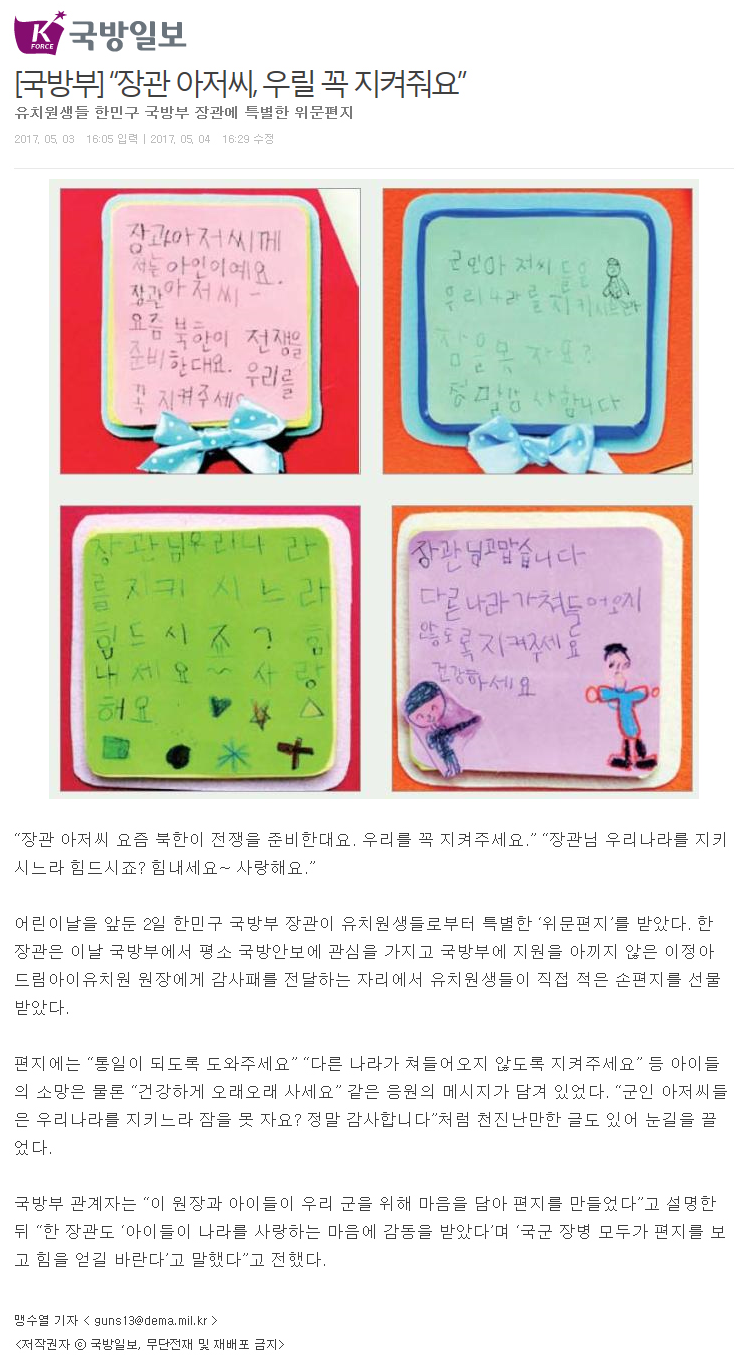 K
FORCE
국방일보
[국방부] “장관 아저씨, 우릴 꼭 지켜줘요”
유치원생들 한민구 국방부 장관에 특별한 위문편지
2017. 05. 03   16:05 입력 | 2017. 05. 04   16:29 수정
장관아저씨께
저는 아인이예요.
장관아저씨-
요즘 북한이 전쟁을
준비한대요. 우리를
꼭 지켜주세요
군인아저씨들은
우리나라를 지키시느라
잠을못 자요?
정말감사합니다
장관님우리나라
를지키시느라
힘드시죠? 힘
내세요~사랑
해요
장관님고맙습니다
다른나라가쳐들어오지
않도록지켜주세요
건강하세요
“장관 아저씨 요즘 북한이 전쟁을 준비한대요. 우리를 꼭 지켜주세요.” “장관님 우리나라를 지키
시느라 힘드시죠? 힘내세요~ 사랑해요.”
어린이날을 앞둔 2일 한민구 국방부 장관이 유치원생들로부터 특별한 ‘위문편지’를 받았다. 한
장관은 이날 국방부에서 평소 국방안보에 관심을 가지고 국방부에 지원을 아끼지 않은 이정아
드림아이유치원 원장에게 감사패를 전달하는 자리에서 유치원생들이 직접 적은 손편지를 선물
받았다.
편지에는 “통일이 되도록 도와주세요” “다른 나라가 쳐들어오지 않도록 지켜주세요” 등 아이들
의 소망은 물론 “건강하게 오래오래 사세요” 같은 응원의 메시지가 담겨 있었다. “군인 아저씨들
은 우리나라를 지키느라 잠을 못 자요? 정말 감사합니다”처럼 천진난만한 글도 있어 눈길을 끌
었다.
국방부 관계자는 “이 원장과 아이들이 우리 군을 위해 마음을 담아 편지를 만들었다”고 설명한
뒤 “한 장관도 ‘아이들이 나라를 사랑하는 마음에 감동을 받았다’며 ‘국군 장병 모두가 편지를 보
고 힘을 얻길 바란다’고 말했다”고 전했다.
맹수열 기자 < guns13@dema.mil.kr >
<저작권자 ⓒ 국방일보, 무단전재 및 재배포 금지>